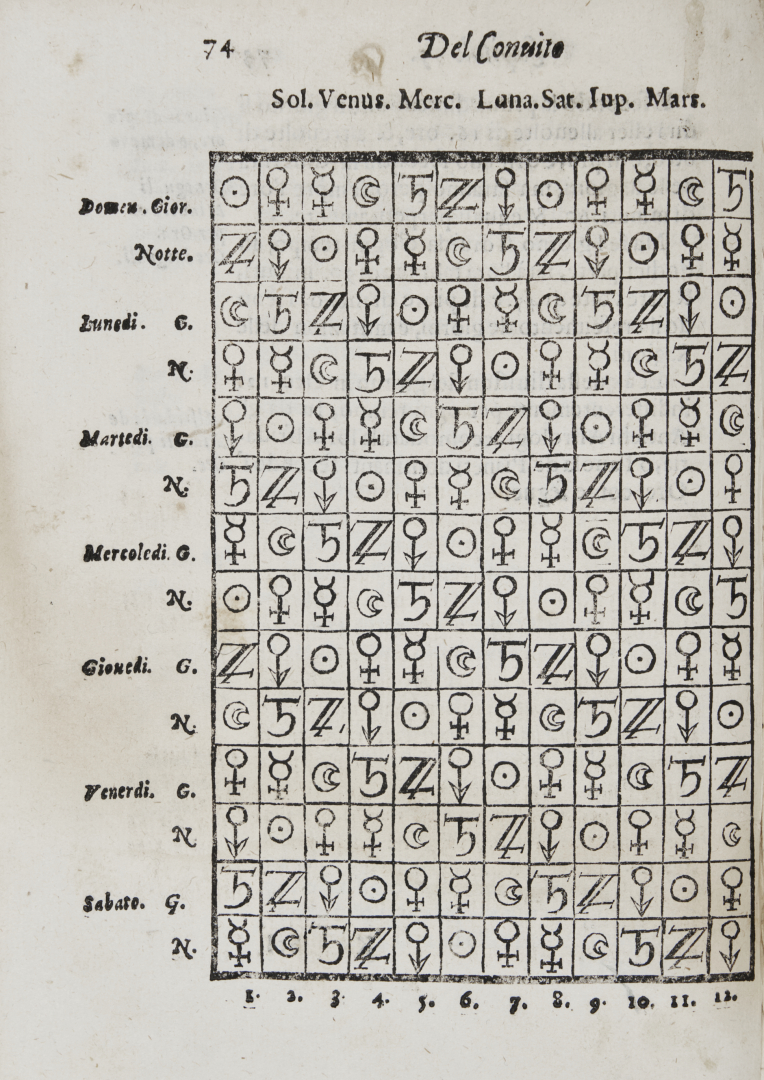 74 Del Conuito
Sol. Venus. Merc. Luna. Sat. Iup. Mars.
Domen. Gior. ☉ ♀ ☿ ☾ ♄ ♃ ♂ ☉ ♀ ☿ ☾ ♄
Notte. ♃ ♂ ☉ ♀ ☿ ☾ ♄ ♃ ♂ ☉ ♀ ☿
Lunedi. G. ☾ ♄ ♃ ♂ ☉ ♀ ☿ ☾ ♄ ♃ ♂ ☉
N. ♀ ☿ ☾ ♄ ♃ ♂ ☉ ♀ ☿ ☾ ♄ ♃
Martedi. G. ♂ ☉ ♀ ☿ ☾ ♄ ♃ ♂ ☉ ♀ ☿ ☾
N. ♄ ♃ ♂ ☉ ♀ ☿ ☾ ♄ ♃ ♂ ☉ ♀
Mercoledi. G. ☿ ☾ ♄ ♃ ♂ ☉ ♀ ☿ ☾ ♄ ♃ ♂
N. ☉ ♀ ☿ ☾ ♄ ♃ ♂ ☉ ♀ ☿ ☾ ♄
Giouedi. G. ♃ ♂ ☉ ♀ ☿ ☾ ♄ ♃ ♂ ☉ ♀ ☿
N. ☾ ♄ ♃ ♂ ☉ ♀ ☿ ☾ ♄ ♃ ♂ ☉
Venerdi. G. ♀ ☿ ☾ ♄ ♃ ♂ ☉ ♀ ☿ ☾ ♄ ♃
N ♂ ☉ ♀ ☿ ☾ ♄ ♃ ♂ ☉ ♀ ☿ ☾
Sabato. G. ♄ ♃ ♂ ☉ ♀ ☿ ☾ ♄ ♃ ♂ ☉ ♀
N. ☿ ☾ ♄ ♃ ♂ ☉ ♀ ☿ ☾ ♄ ♃ ♂
1. 2. 3. 4. 5. 6. 7. 8. 9. 10. 11. 12.